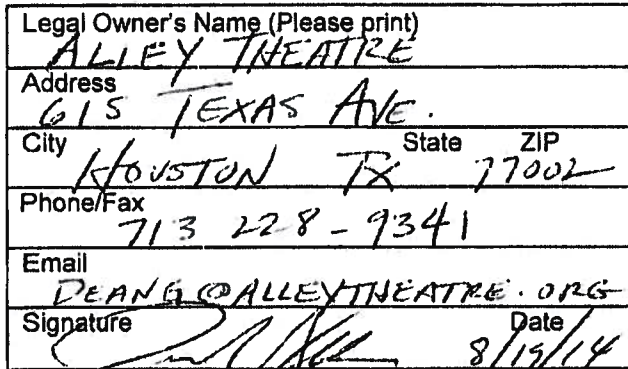 Legal Owner's Name (Please print)
ALLEY THEATRE
Address
615 TEXAS AVE.
City State ZIP
HOUSTON TX 77002
Phone/Fax
713 228-9341
Email
DEANG@ALLEYTHEATRE.ORG
Signature Date
8/19/14